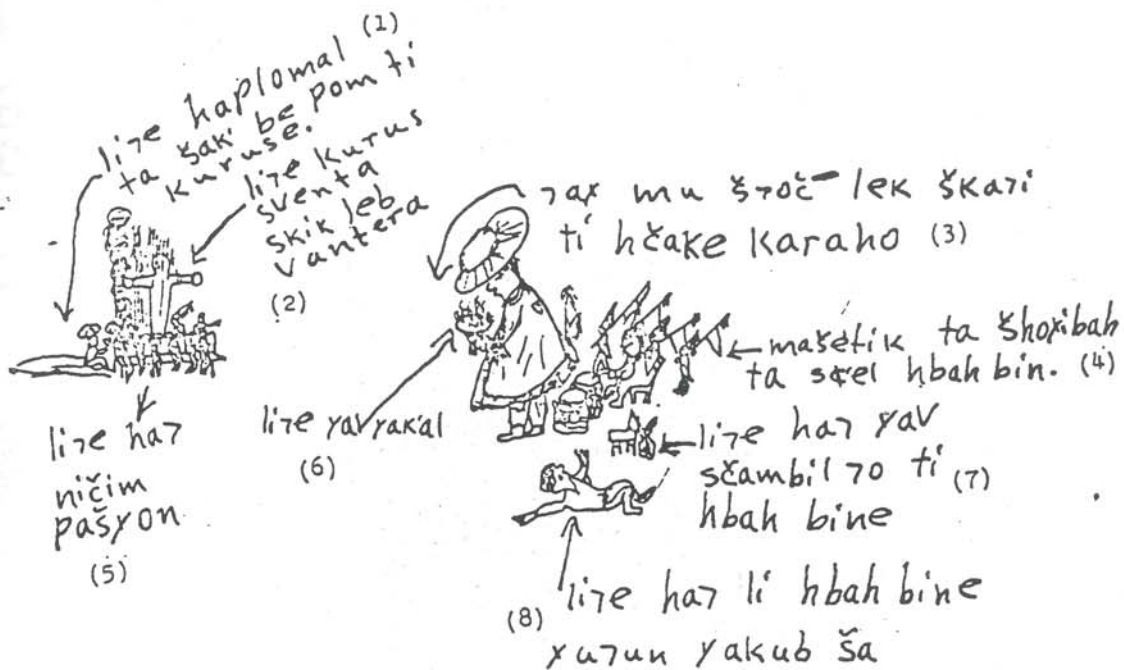 (1)
li7e haplomal
ta šak' be pom ti
kuruse.
li7e kurus
sventa
skikleb
vantera
(2)
7ax mu š7oč lek ška7i
ti hčake karaho (3)
mašetik ta šhoyibah
ta sťel hbah bin. (4)
li7e ha7
ničim
pašyon
(5)
li7e yav yak'al
(6)
li7e ha7 yav
sčambil 7o ti (7)
hbah bine
(8) li7e ha7 li hbah bine
yu7un yakub ša